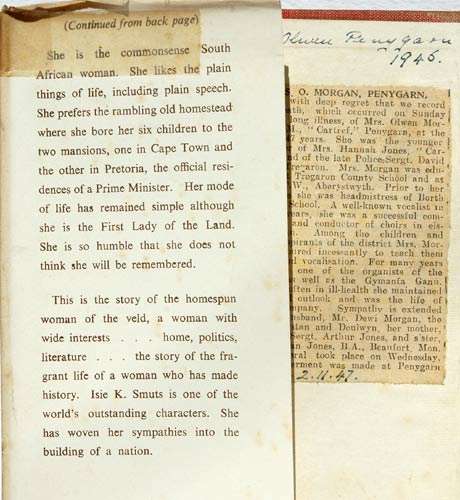 (Continued from back page)
She is the commonsense South
African woman. She likes the plain
things of life, including plain speech.
She prefers the rambling old homestead
where she bore her six children to the
two mansions, one in Cape Town and
the other in Pretoria, the official resi-
dences of a Prime Minister. Her mode
of life has remained simple although
she is the First Lady of the Land.
She is so humble that she does not
think she will be remembered.
This is the story of the homespun
woman of the veld, a woman with
wide interests . . . home, politics,
literature . . . the story of the fra-
grant life of a woman who has made
history. Isie K. Smuts is one of the
world's outstanding characters. She
has woven her sympathies into the
building of a nation.
Olwen Penygarn
1945.
S. O. MORGAN, PENYGARN.
with deep regret that we record
ath, which occurred on Sunday
long illness, of Mrs. Olwen Mor-
"Cartref," Penygarn, at the
years. She was the younger
of Mrs. Hannah Jones, "Car-
nd of the late Police-Sergt. David
regaron. Mrs. Morgan was edu-
Tregaron County School and as
W., Aberystwyth. Prior to her
she was headmistress of Borth
School. A well-known vocalist in
years, she was a successful com-
and conductor of choirs in eis-
Among the children and
pirants of the district Mrs. Mor-
ured incessantly to teach them
vocalisation. For many years
one of the organists of the
s well as the Gymanfa Ganu.
ften in ill-health she maintained
outlook and was the life of
mpany. Sympathy is extended
usband, Mr. Dewi Morgan, the
tan and Deulwyn, her mother,
Sergt. Arthur Jones, and sister,
an Jones, B.A., Beaufort, Mon.
ral took place on Wednesday.
erment was made at Penygarn
2.11.47.